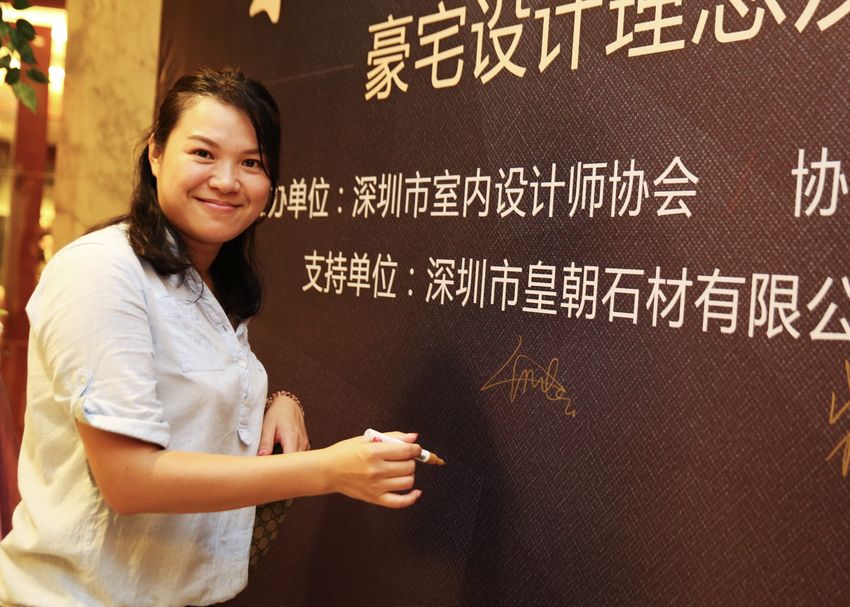 豪宅设计理念及
办单位：深圳市室内设计师协会 协
支持单位：深圳市皇朝石材有限公